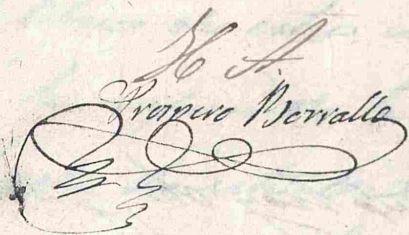 H A
Prospero Borralla